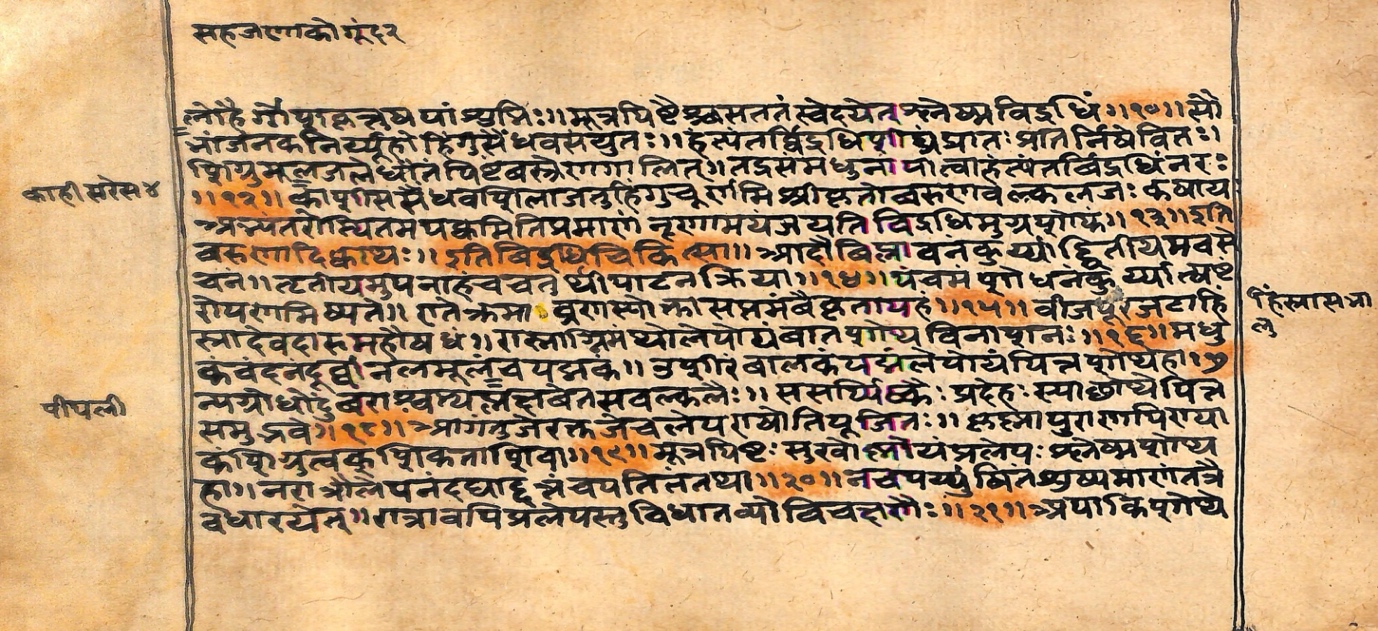 सहजणाको गूंद २
लोहै र्गो पूाकृन्नुष पांशुभिः॥ मूत्रपिष्टै श्च सततं स्वेदयेत् श्लेष्म विद्रधिं॥१०॥ सौ
भांजनकनिर्य्यूहो हिंगुसैंधवसंयुतः॥ हंत्यंतर्विद्रधिं शीघ्रं प्रातः प्रातर्निषेवितः।
शिग्रुमूलं जले धौतं पिष्टं वस्त्रेण गालितं॥ तद्रसं मधुना पीत्वा हंत्यंतर्विद्रधिं नरः
॥१२॥ काशीस सैंधव शिलाजतु हिंगुचूर्णमिश्रीकृतो वरुण वल्कलजः कषाय
अभ्यंतरोस्थितमपक्वमितिप्रमाणं नृणामयं जयति विद्रधिमुग्रशोफं॥१३॥ इति
वरुणादि क्वाथः॥ इति विद्रधि चिकित्सा॥ आदौ विम्लावनं कुर्य्याद्द्वितीयमवसे
चनं॥ तृतीयमुपनाहं च चतुर्थी पाटन क्रिया॥१४॥ पंचमं शोधनं कुर्य्यात्षष्टं
रोपणमिष्यते॥ एते क्रमा व्रणस्योक्ता सप्तमं वैकृतापहं॥१५॥ बीजपूरजटाहिं
स्रादेवदारुमहौषधं॥ रास्नाग्निमंथोलेपोयं वातशोथ विनाशनः॥१६॥ मधु
कं चंदनं दूर्वा नलमूलं च पद्मकं॥ उशीरं बालकं पद्मं लेपोयं पित्तशोथहा॥१७
न्यग्रोधोदुंबराश्वत्थप्लक्षवेतसवल्कलैः॥ ससर्पिष्कैः प्रदेहः स्याछोथे पित्त
समुद्भवे॥१८॥ आगंतुजे रक्तजे च लेप एषोतिपूजितः॥ कृष्णा पुराणपिण्या
कं शिग्रुत्वक् शिकता शिवा॥१९॥ मूत्रपिष्टः सुखोष्णोयं प्रलेपः श्लेष्मशोथ
हा॥ नरात्रौलेपनं दद्याद्दत्तं च पतितं तथा॥२०॥ न च पर्य्युषितं शुष्यमाणं तन्नै
वधारयेत्॥ रात्रावपि प्रलेपस्तु विधातव्यो विचक्षणैः॥२१॥ अपाकि शोथे
काही सरेस ४
पीपली
१ हिंस्रा सजा
लु